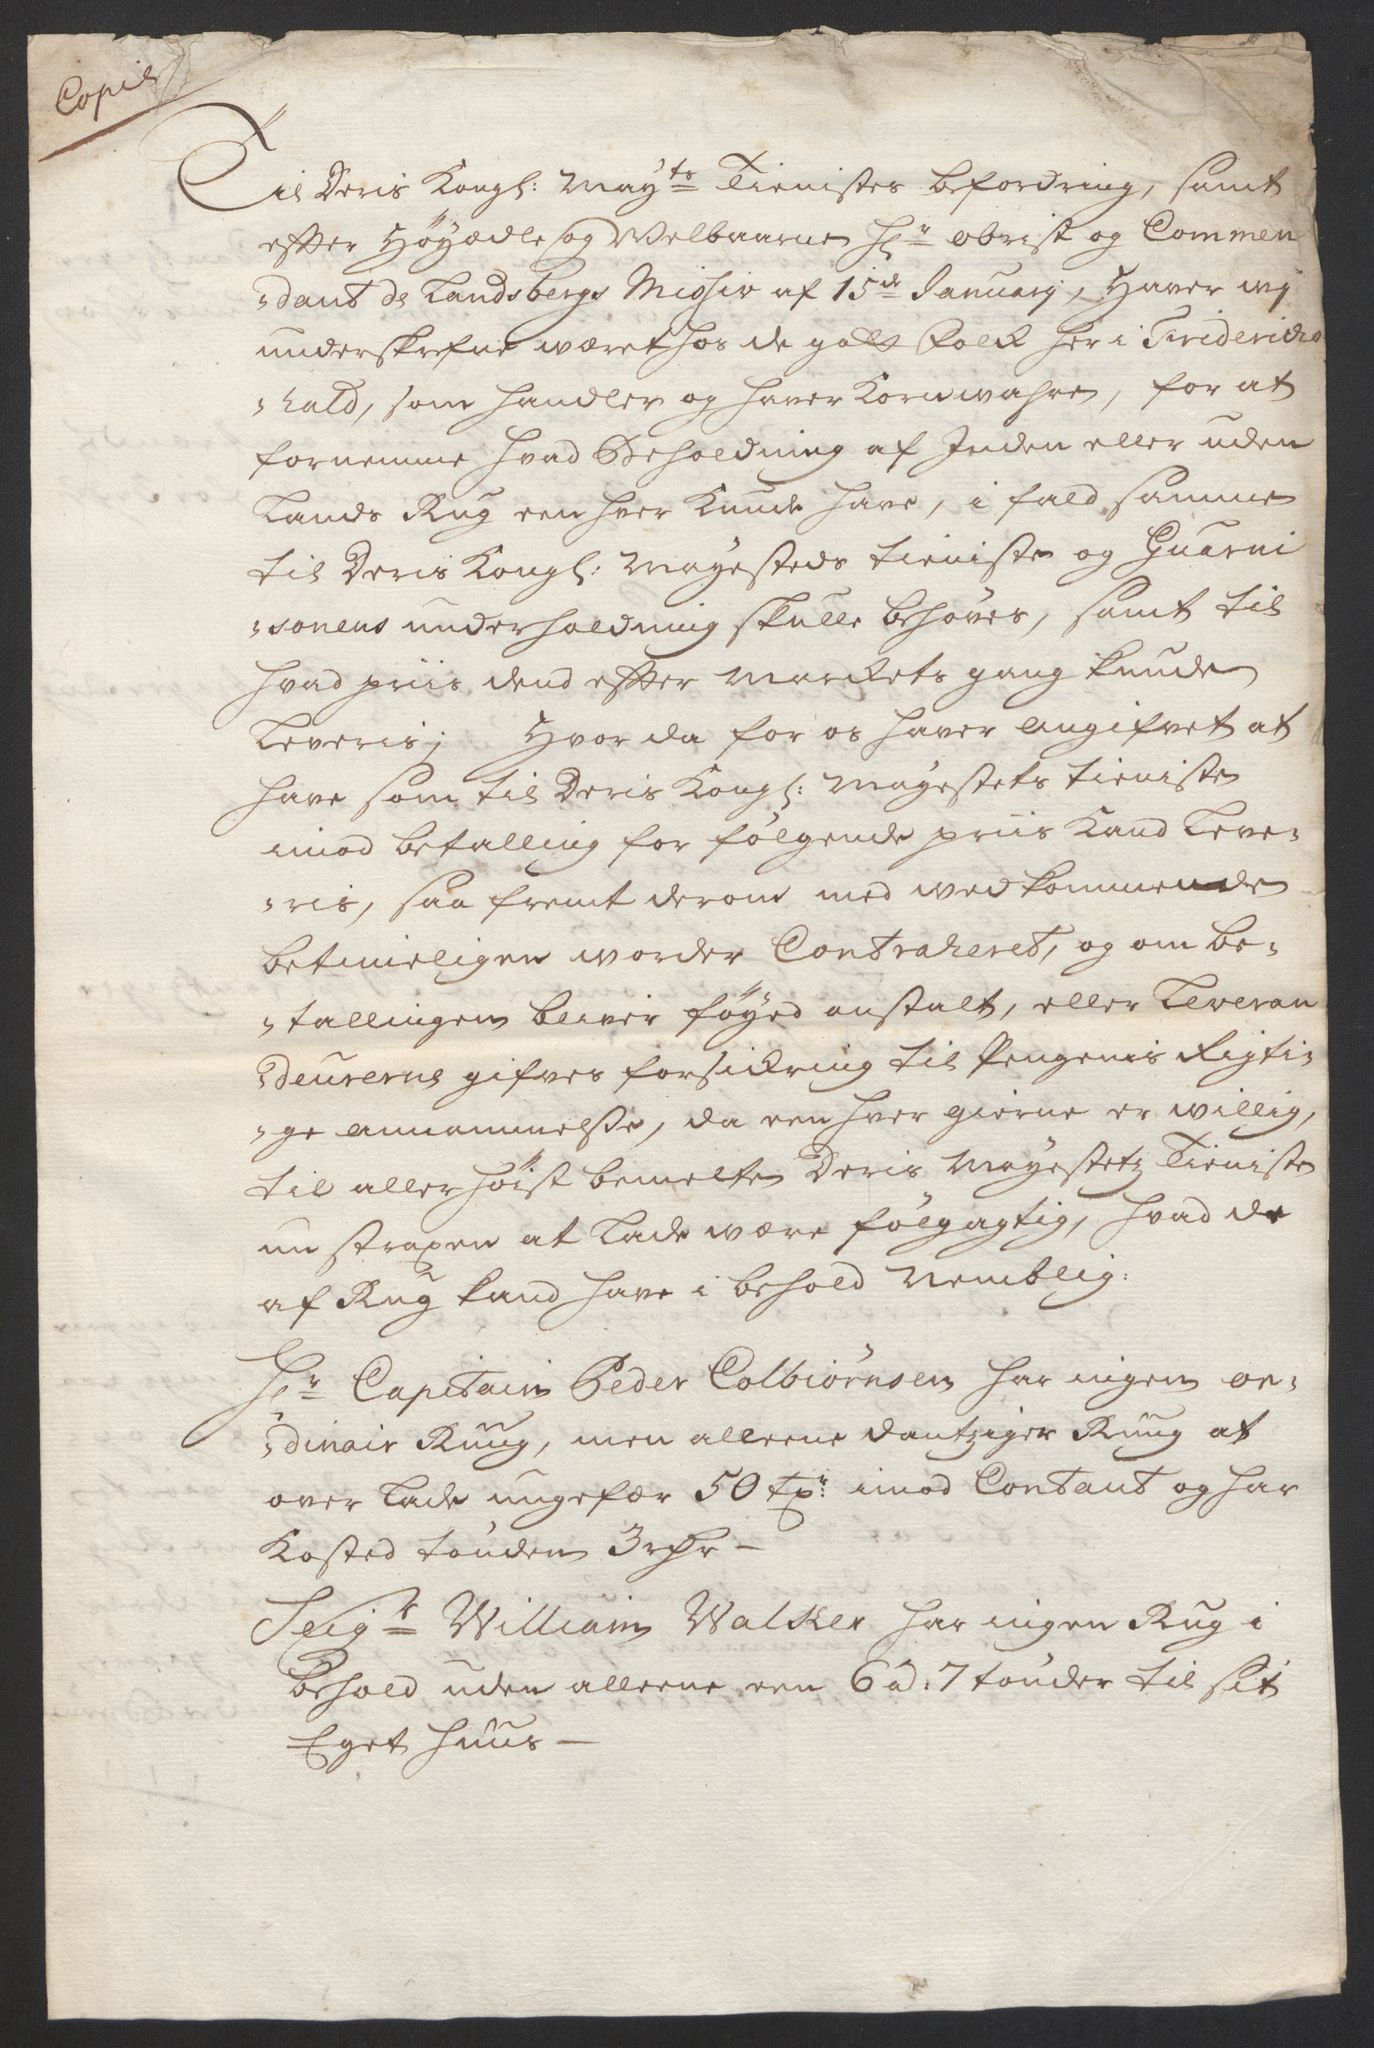 Copie
Til Deris Kongl: Mayts Tienistes befordring, samt
effter Høyædle og Welbaarne Hr Obrist og Commen
-dant de Landsbergs Missiv af 15de January, Haver wj
underskrefne wæret hos de gott Folk her i Friderichs
-hald, som handler og haver Kornwahre, for at
fornemme hvad Beholdning af Inden eller uden
Lands Rug een hver kunde have, i fald samme
til Deris Kongl: Mayesteds tieniste og Guarni
-sonens underholdning skulle behøves, samt til
hvad priis dend effter Markets gang kunde
Leveris; Hvor da for os haver angifvet at
have som til Deris Kongl: Mayestets tieniste
imod betalling for følgende priis Kand Leve-
-ris, saa fremt derom med wedkommende
betimeligen worder Contraheret, og om be-
-tallingen bliver føyed anstalt, eller Leveran
-deurerne gifves forsikring til Pengenis Rigti-
-ge annammelsse, da een hver gierne er willig,
til allerhøist bemelte Deris Mayestetz Tieniste
nu straxen at Lade være følgagtig, hvad de
af Rug kand have i behold Nemblig:
Hr Capitain Peder Colbiørnsen har ingen or-
-dinair Ruug, men alleene dantziger Ruug at
over Lade ungefær 50 tr: imod Contant og har
Kosted tønden 3 rdr -
Seigr William Walker har ingen Rug i
Behold uden alleene een 6 ad: 7 tønder til sit
Eget huus -